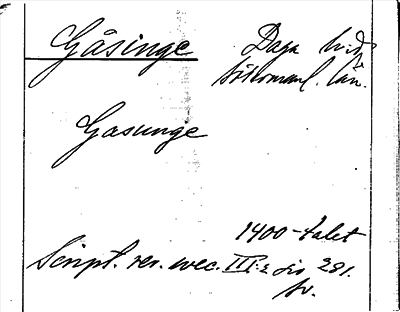 Gåsinge Daga hd
Södermanl. län.
Gasunge
1400-talet
Script. rer. svec. III:2 sid 291.
sv.